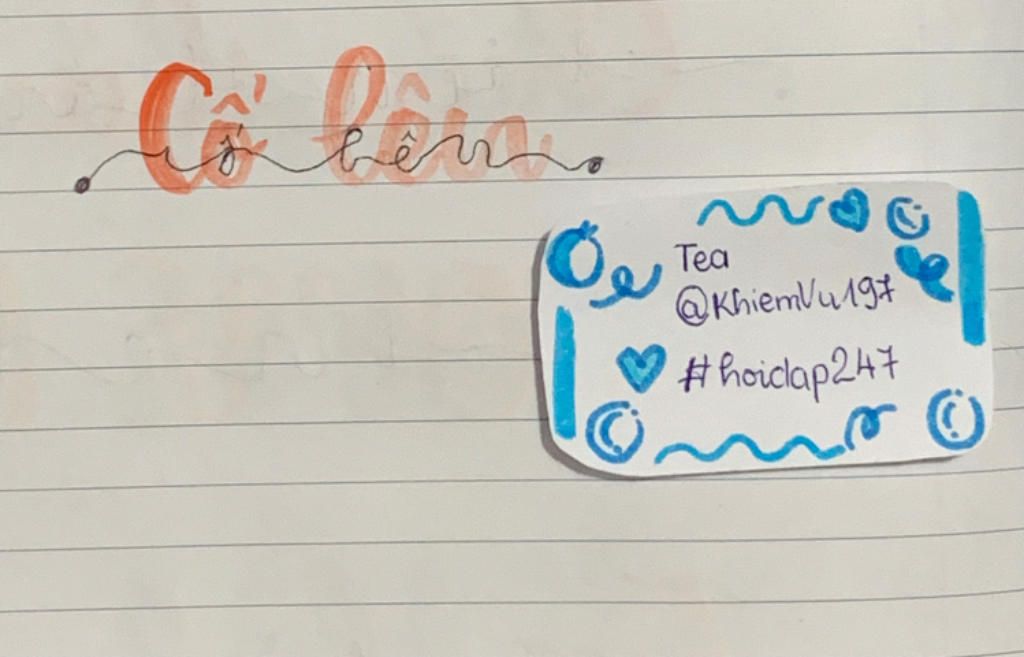 Cố lên
cố lên
Tea
@KhiemVu197
#hoidap247